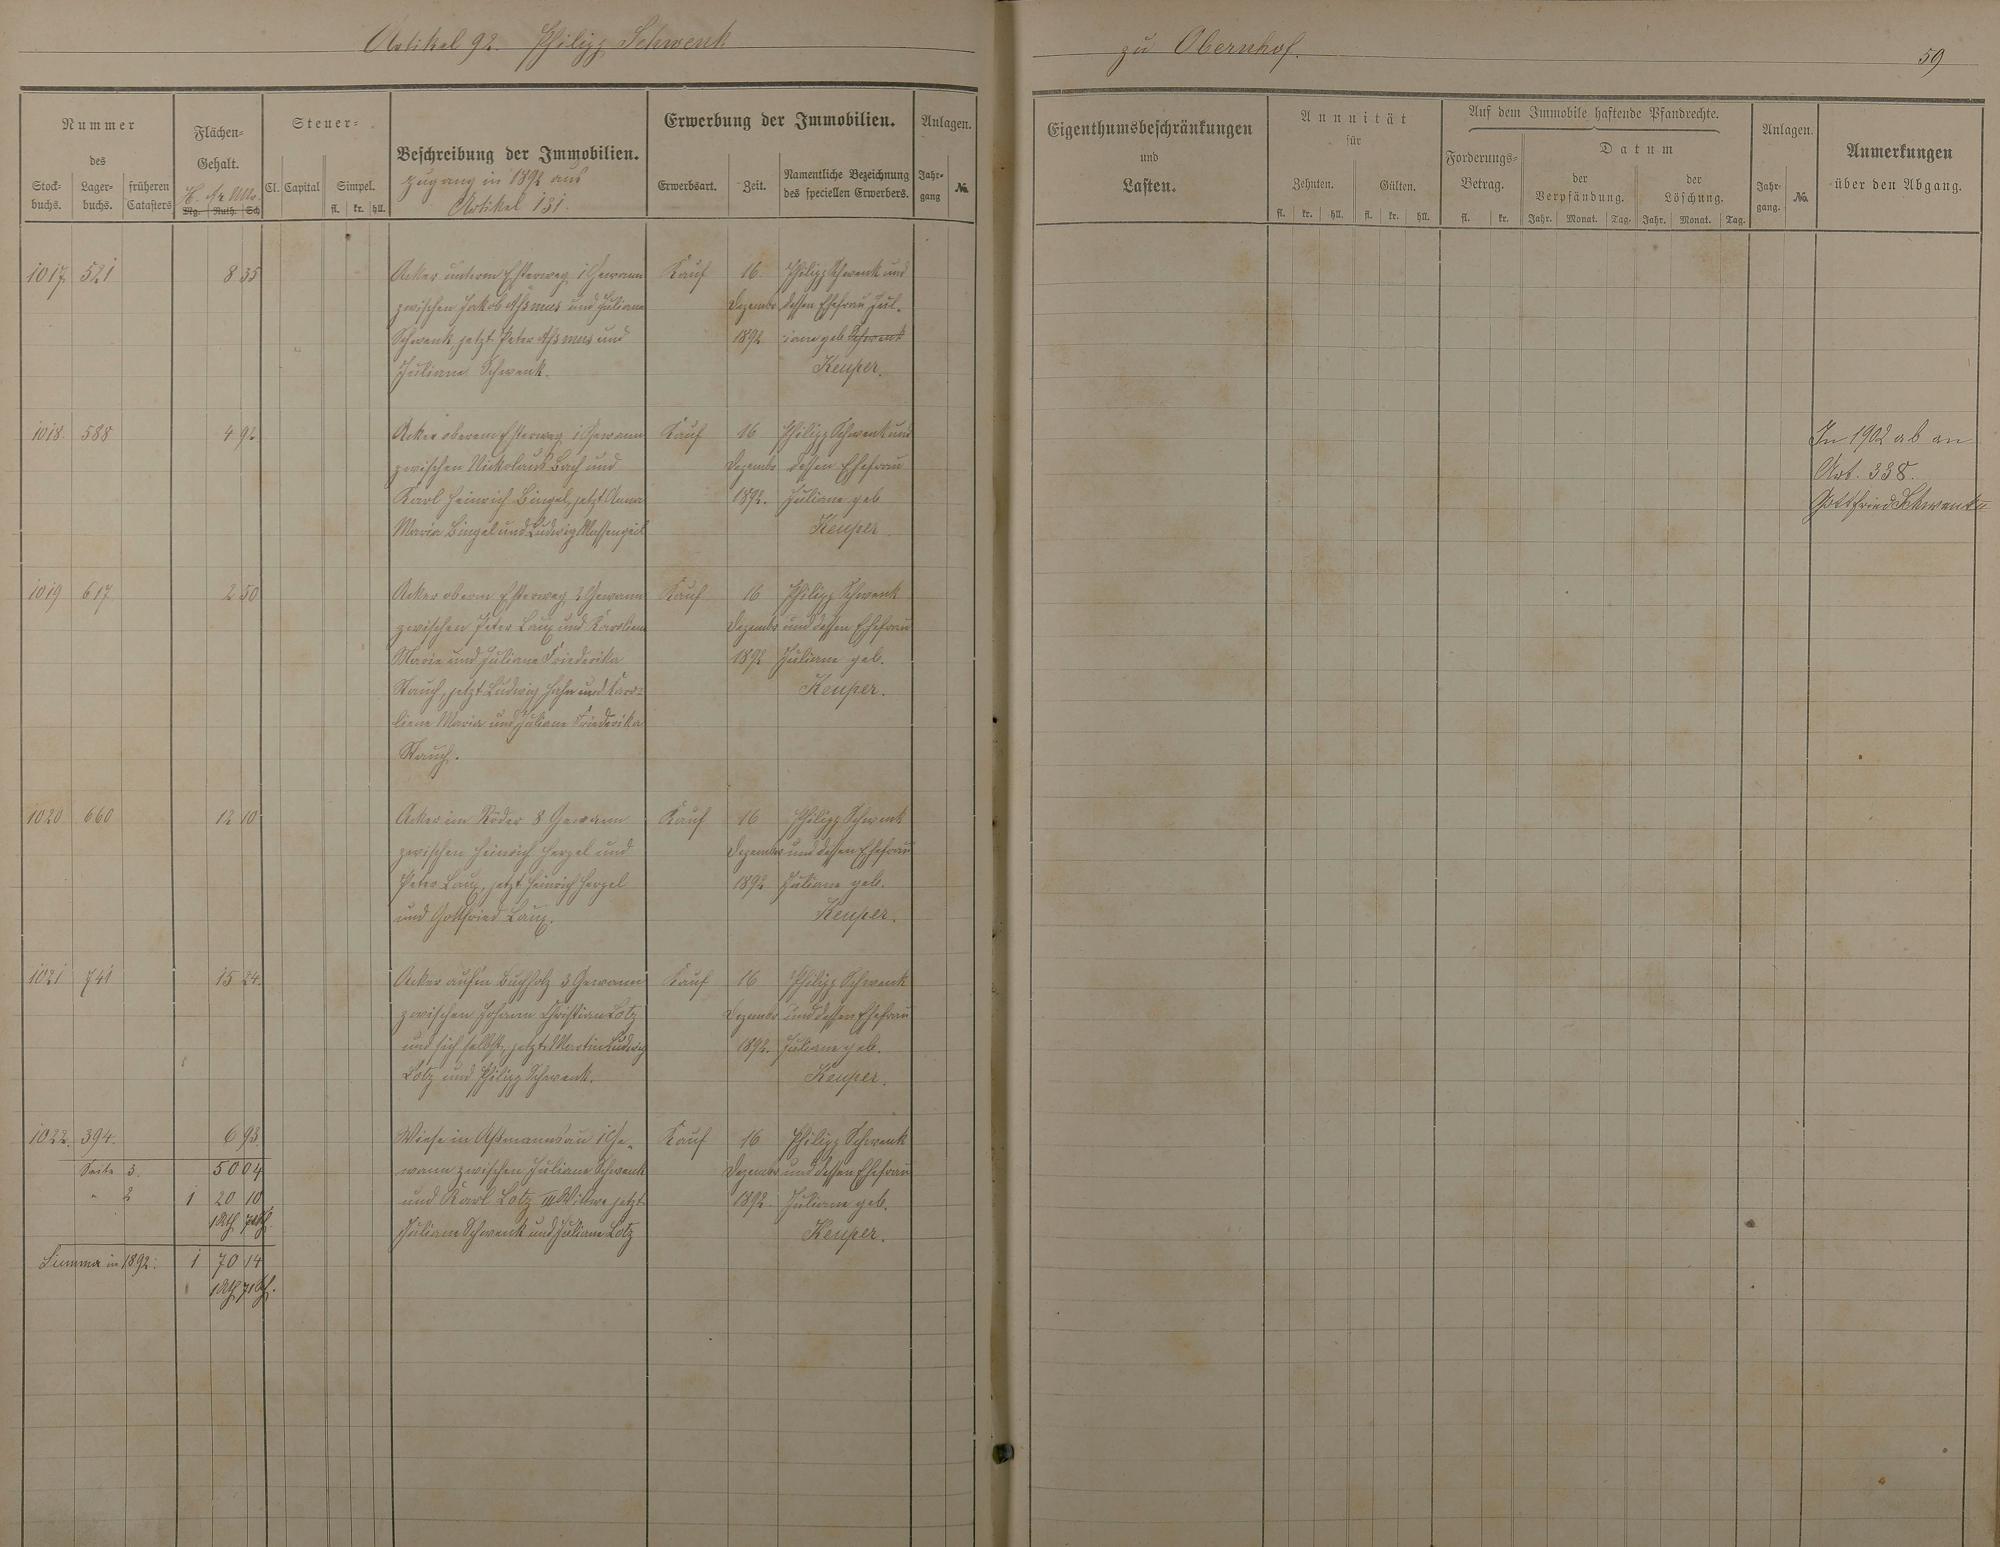 Artikel 92. Philipp Schwenk
zu Obernhof.
59
Nummer
des
Stock-
buchs.
Lager-
buchs.
früheren
Catasters
Flächen-
Gehalt.
H. Ar Mtr.
Mg. Ruth. Sch
Steuer-
Cl. Capital Simpel.
fl. kr. hll.
Beschreibung der Immobilien.
Zugang in 1892 aus
Artikel 131.
Erwerbung der Immobilien.
Erwerbsart. Zeit.
Namentliche Bezeichnung
des speciellen Erwerbers.
Anlagen.
Jahr-
gang
No.
Eigenthumsbeschränkungen
und
Lasten.
Annuität
für
Zehnten. Gülten.
fl. kr. hll. fl. kr. hll.
Auf dem Immobile haftende Pfandrechte.
Forderungs-
Betrag.
fl. kr.
Datum
der
Verpfändung.
Jahr. Monat. Tag.
der
Löschung.
Jahr. Monat. Tag.
Anlagen.
Jahr-
gang.
No.
Anmerkungen
über den Abgang.
1017 521 8 35 Acker unterm Esterweg 1 Gewann Kauf 16. Philipp Schwenk und
zwischen Jakob Aßmus und Juliane Dezember dessen Ehefrau Jul-
Schwenk jetzt Peter Aßmus und 1892 iane geb Schwenk
Juliane Schwenk. Keuper.
1018. 588 4 92 Acker oberem Esterweg 1 Gewann Kauf 16 Philipp Schwenk und
zwischen Nickolaus Bach und Dezembr dessen Ehefrau
Karl Heinrich Bingel, jetzt Anna 1892. Juliane geb
Maria Bingel und Ludwig Massengeil Keuper
In 1902 ab an
Art. 338.
Gottfried Schwenk
1019 617 2 50 Acker oberm Esterweg 2 Gewann Kauf 16 Philipp Schwenk
zwischen Peter Laux und Karoliene Dezembr und dessen Ehefrau
Marie und Juliane Friederika 1892 Juliane geb.
Stauch, jetzt Ludwig Hahn und Karo- Keuper.
liene Maria und Juliane Friederika
Stauch.
1020 660 12 10 Acker im Röder 8 Gewann Kauf 16 Philipp Schwenk
zwischen Heinrich Herzel und Dezember und dessen Ehefrau
Peter Laux, jetzt Heinrich Herzel 1892 Juliane geb.
und Gottfried Laux. Keuper.
1021 741 15 24. Acker aufm Buchholz 3 Gewann Kauf 16 Philipp Schwenk
zwischen Johann Christian Lotz Dezembr und dessen Ehefrau
und sich selbst, jetzt Martin Ludwig 1892. Juliane geb.
Lotz und Philipp Schwenk. Keuper.
1022. 394. 6 93. Wiese in Aßmannsau 1 Ge- Kauf 16 Philipp Schwenk
Seite 3. 50 04 wann zwischen Juliane Schwenk Dezember und dessen Ehefrau
" 2 1 20 10 und Karl Lotz III Witwe jetzt 1892. Juliane geb.
1 Rth 71 Sch. Juliane Schwenk und Juliane Lotz Keuper.
Summa in 1892: 1 70 14
1 Rth 71 Sch.